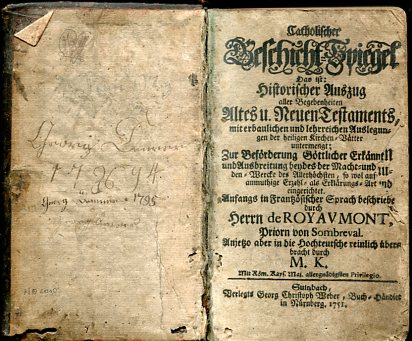 1694
1795
Catholischer
Geschicht-Spiegel
Das ist:
Historischer Auszug
aller Begebenheiten
Altes u. Neuen Testaments,
mit erbaulichen und lehrreichen Auslegun-
gen der heiligen Kirchen-Vätter
untermengt;
Zur Beförderung Göttlicher Erkänntn
und Ausbreitung beydes der Macht- und
den-Wercke des Allerhöchsten, so wol auf
anmuthige Erzehl- als Erklärungs-Art
eingerichtet.
Anfangs in Frantzösischer Sprach beschriebe
durch
Herrn de ROYAVMONT,
Priorn von Sombreval.
Anjetzo aber in die Hochteutsche reinlich über-
bracht durch
M. K.
Mit Röm. Kays. Maj. allergnädigsten Privilegio.
Sultzbach,
Verlegts Georg Christoph Weber, Buch-Händler
in Nürnberg. 1751.